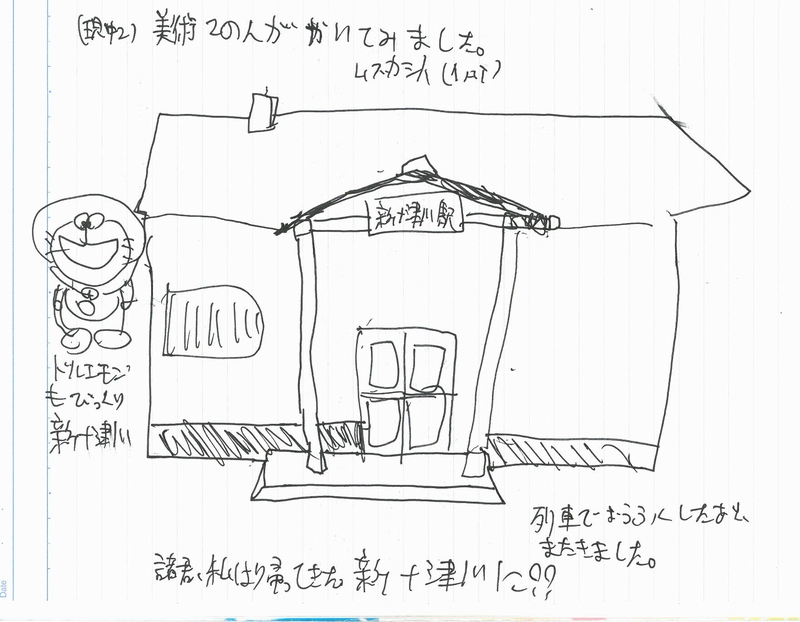 (現中2) 美術2の人がかいてみました。
ムズカシイ
新十津川駅
もびっくり
新十津川
列車でおうふくしたあと、
またきました。
諸君、私は帰ってきた 新十津川に!!
Date